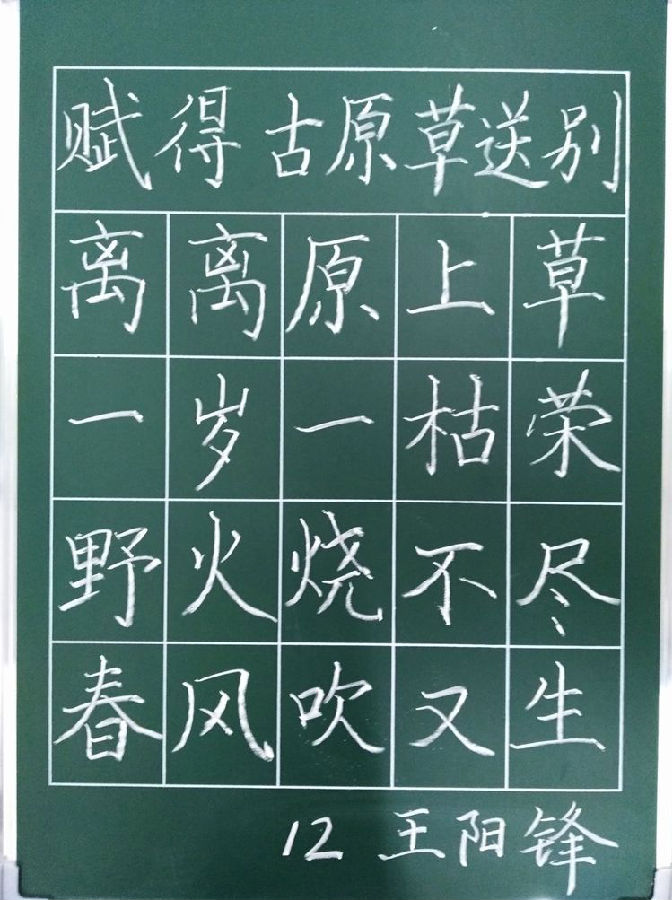 赋得古原草送别
离离原上草
一岁一枯荣
野火烧不尽
春风吹又生
12 王阳锋